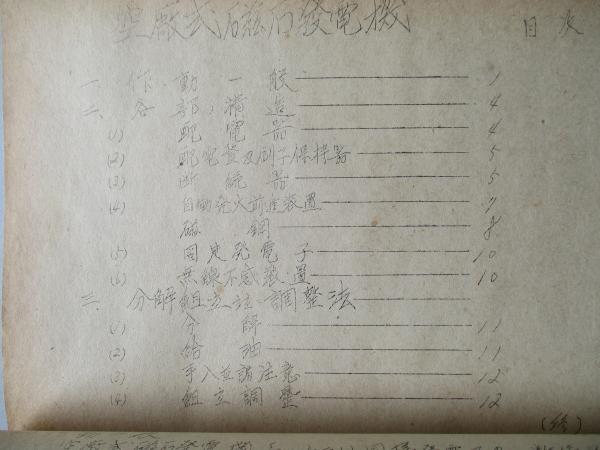 空廠式磁石發電機 目次
一、作動一般 1
二、各部構造 4
(1) 配電器 4
(2) 配電盤及刷子保持器 5
(3) 断続器 5
(4) 自動発火前進装置 7
磁鋼 8
(5) 固定発電子 10
(6) 無線不感装置 10
三、分解組立法調整法
(1) 分解 11
(2) 給油 11
(3) 手入並諸注意 12
(4) 組立調整 12
(終)